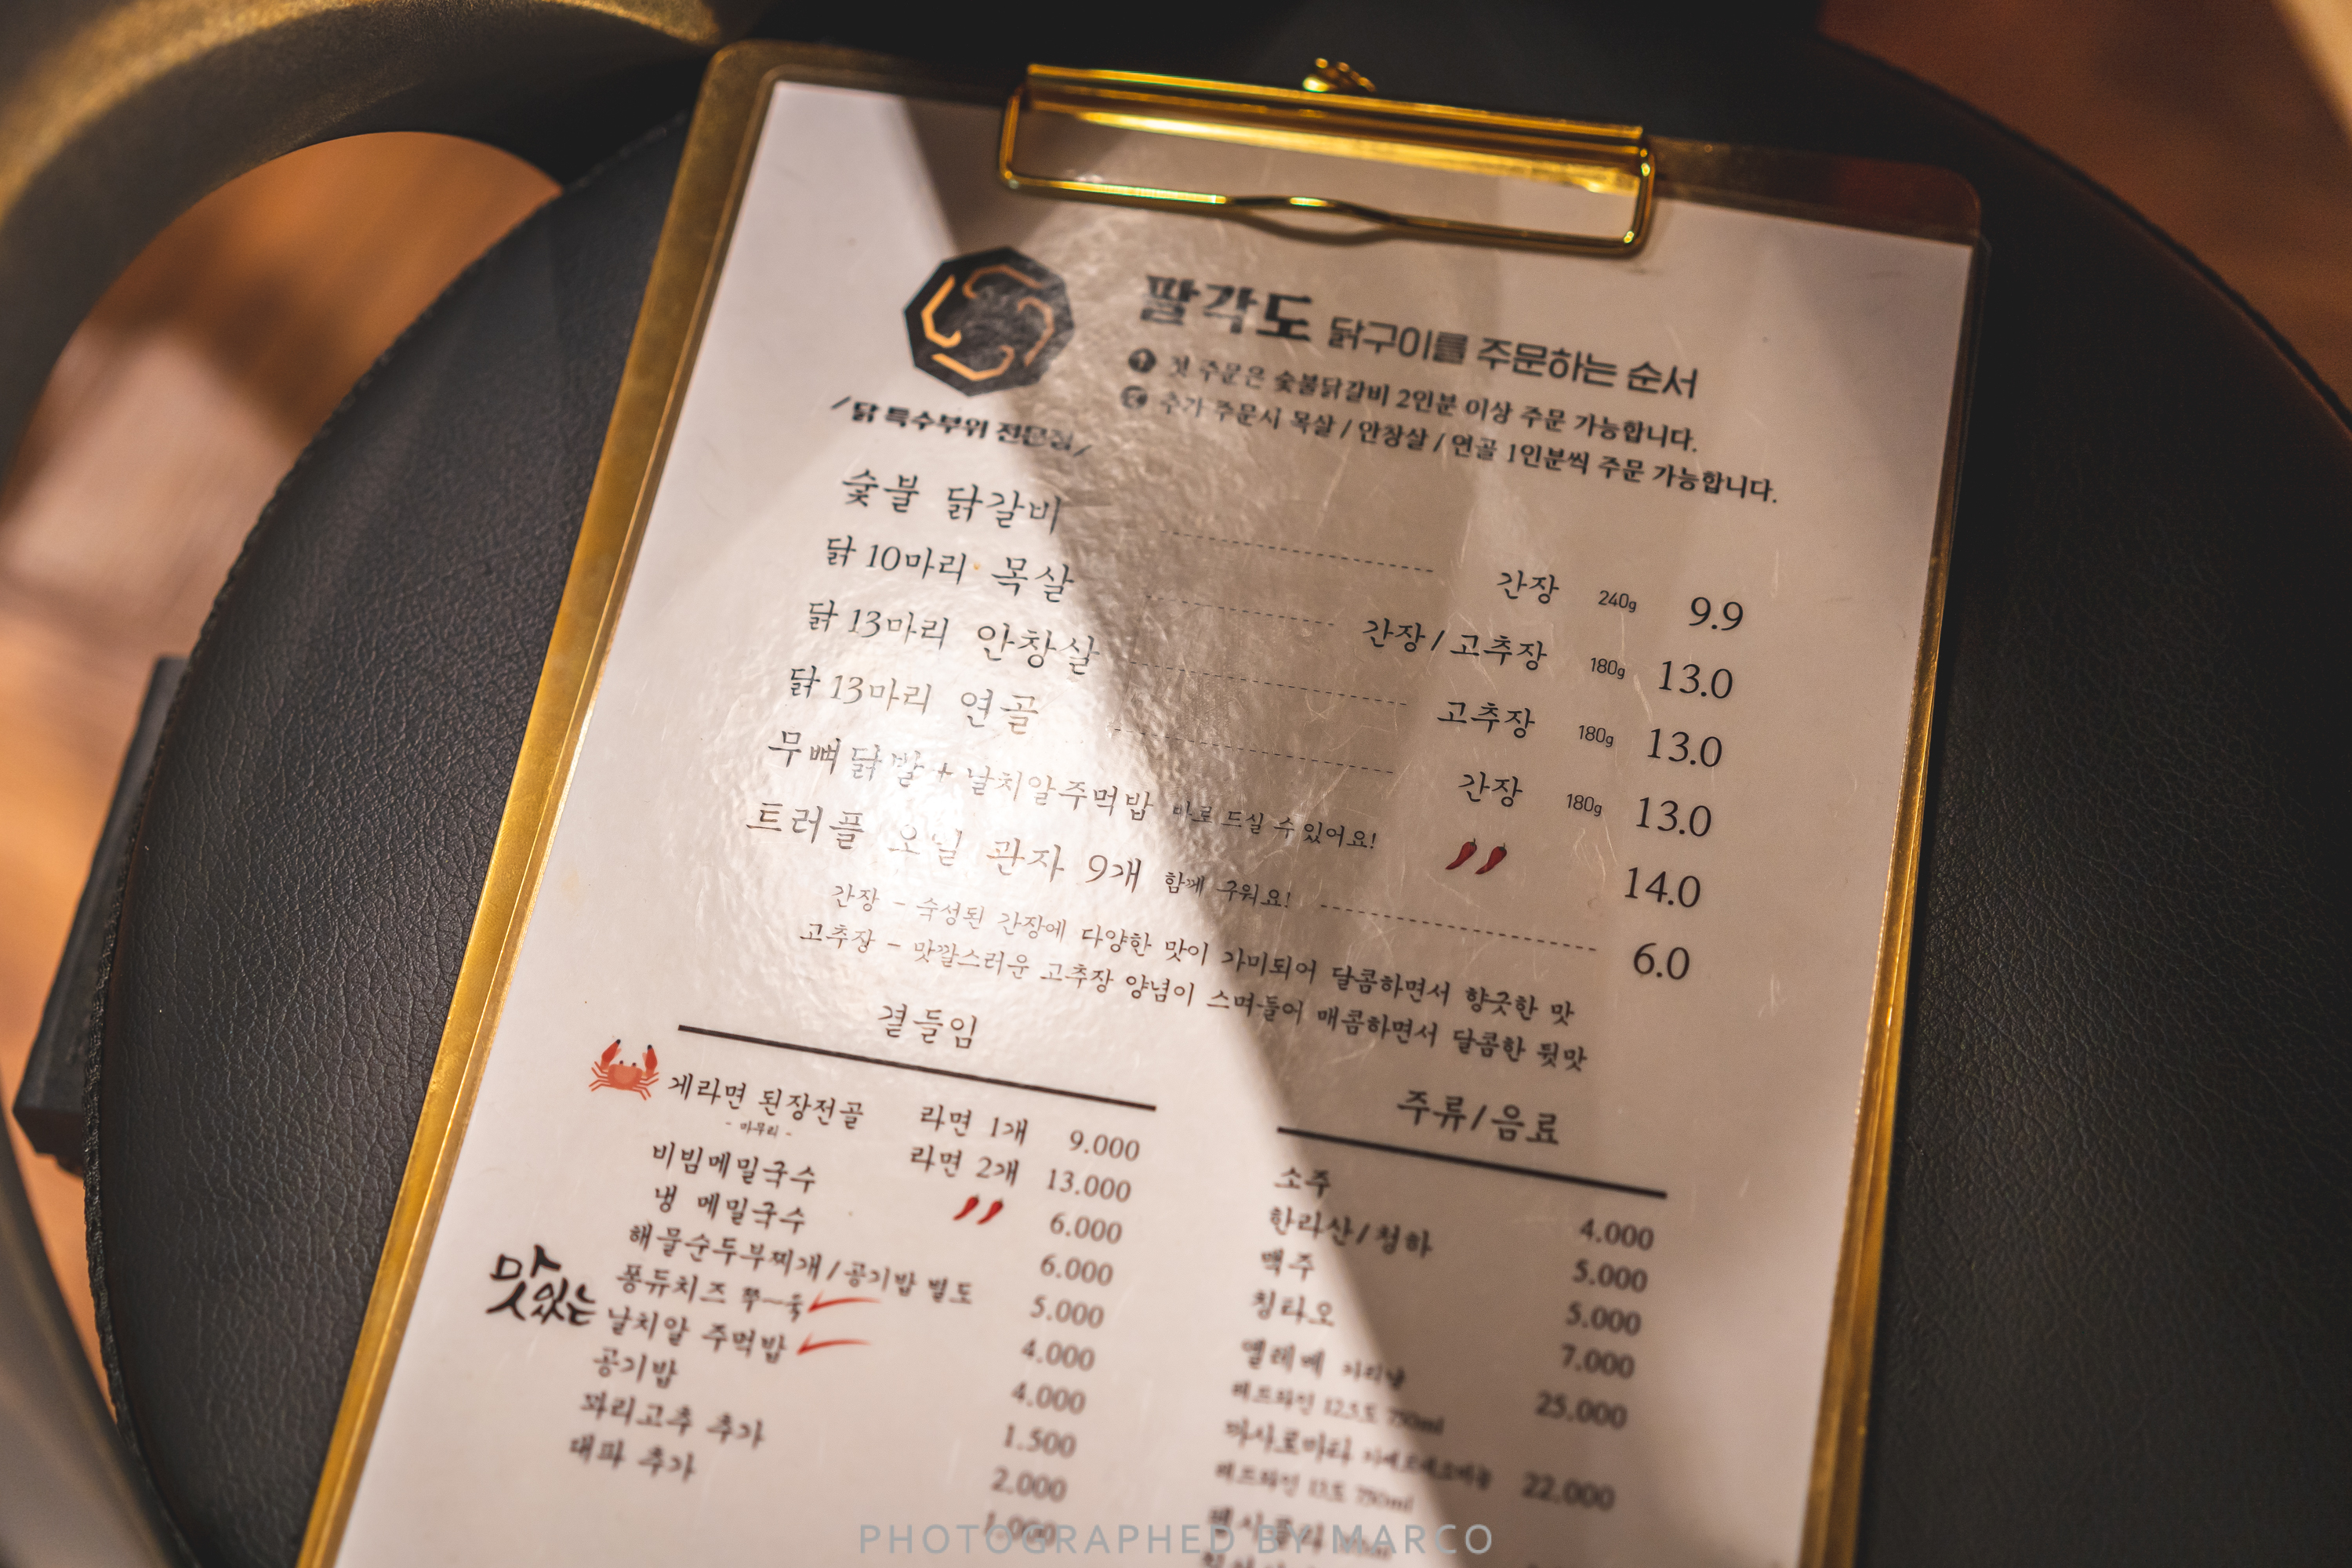 팔각도 닭구이를 주문하는 순서
1 첫 주문은 숯불닭갈비 2인분 이상 주문 가능합니다.
2 추가 주문시 목살 / 안창살 / 연골 1인분씩 주문 가능합니다.
/ 닭 특수부위 전문점 /
숯불 닭갈비 간장 240g 9.9
닭 10마리 목살 간장 / 고추장 180g 13.0
닭 13마리 안창살 고추장 180g 13.0
닭 13마리 연골 간장 180g 13.0
무뼈닭발 + 날치알주먹밥 바로 드실 수 있어요! 14.0
트러플 오일 관자 9개 함께 구워요! 6.0
간장 - 숙성된 간장에 다양한 맛이 가미되어 달콤하면서 향긋한 맛
고추장 - 맛깔스러운 고추장 양념이 스며들어 매콤하면서 달콤한 뒷맛
곁들임
게라면 된장전골 라면 1개 9.000
- 마무리 -
라면 2개 13.000
비빔메밀국수 6.000
냉 메밀국수 6.000
해물순두부찌개 / 공기밥 별도 5.000
맛있는
퐁듀치즈 쭈~욱 4.000
날치알 주먹밥 4.000
공기밥 1.500
꽈리고추 추가 2.000
대파 추가 1.000
주류/음료
소주 4.000
한라산 / 청하 5.000
맥주 5.000
칭타오 7.000
25.000
레드와인 12.5도 750ml
22.000
레드와인 13도 750ml
PHOTOGRAPHED BY MARCO